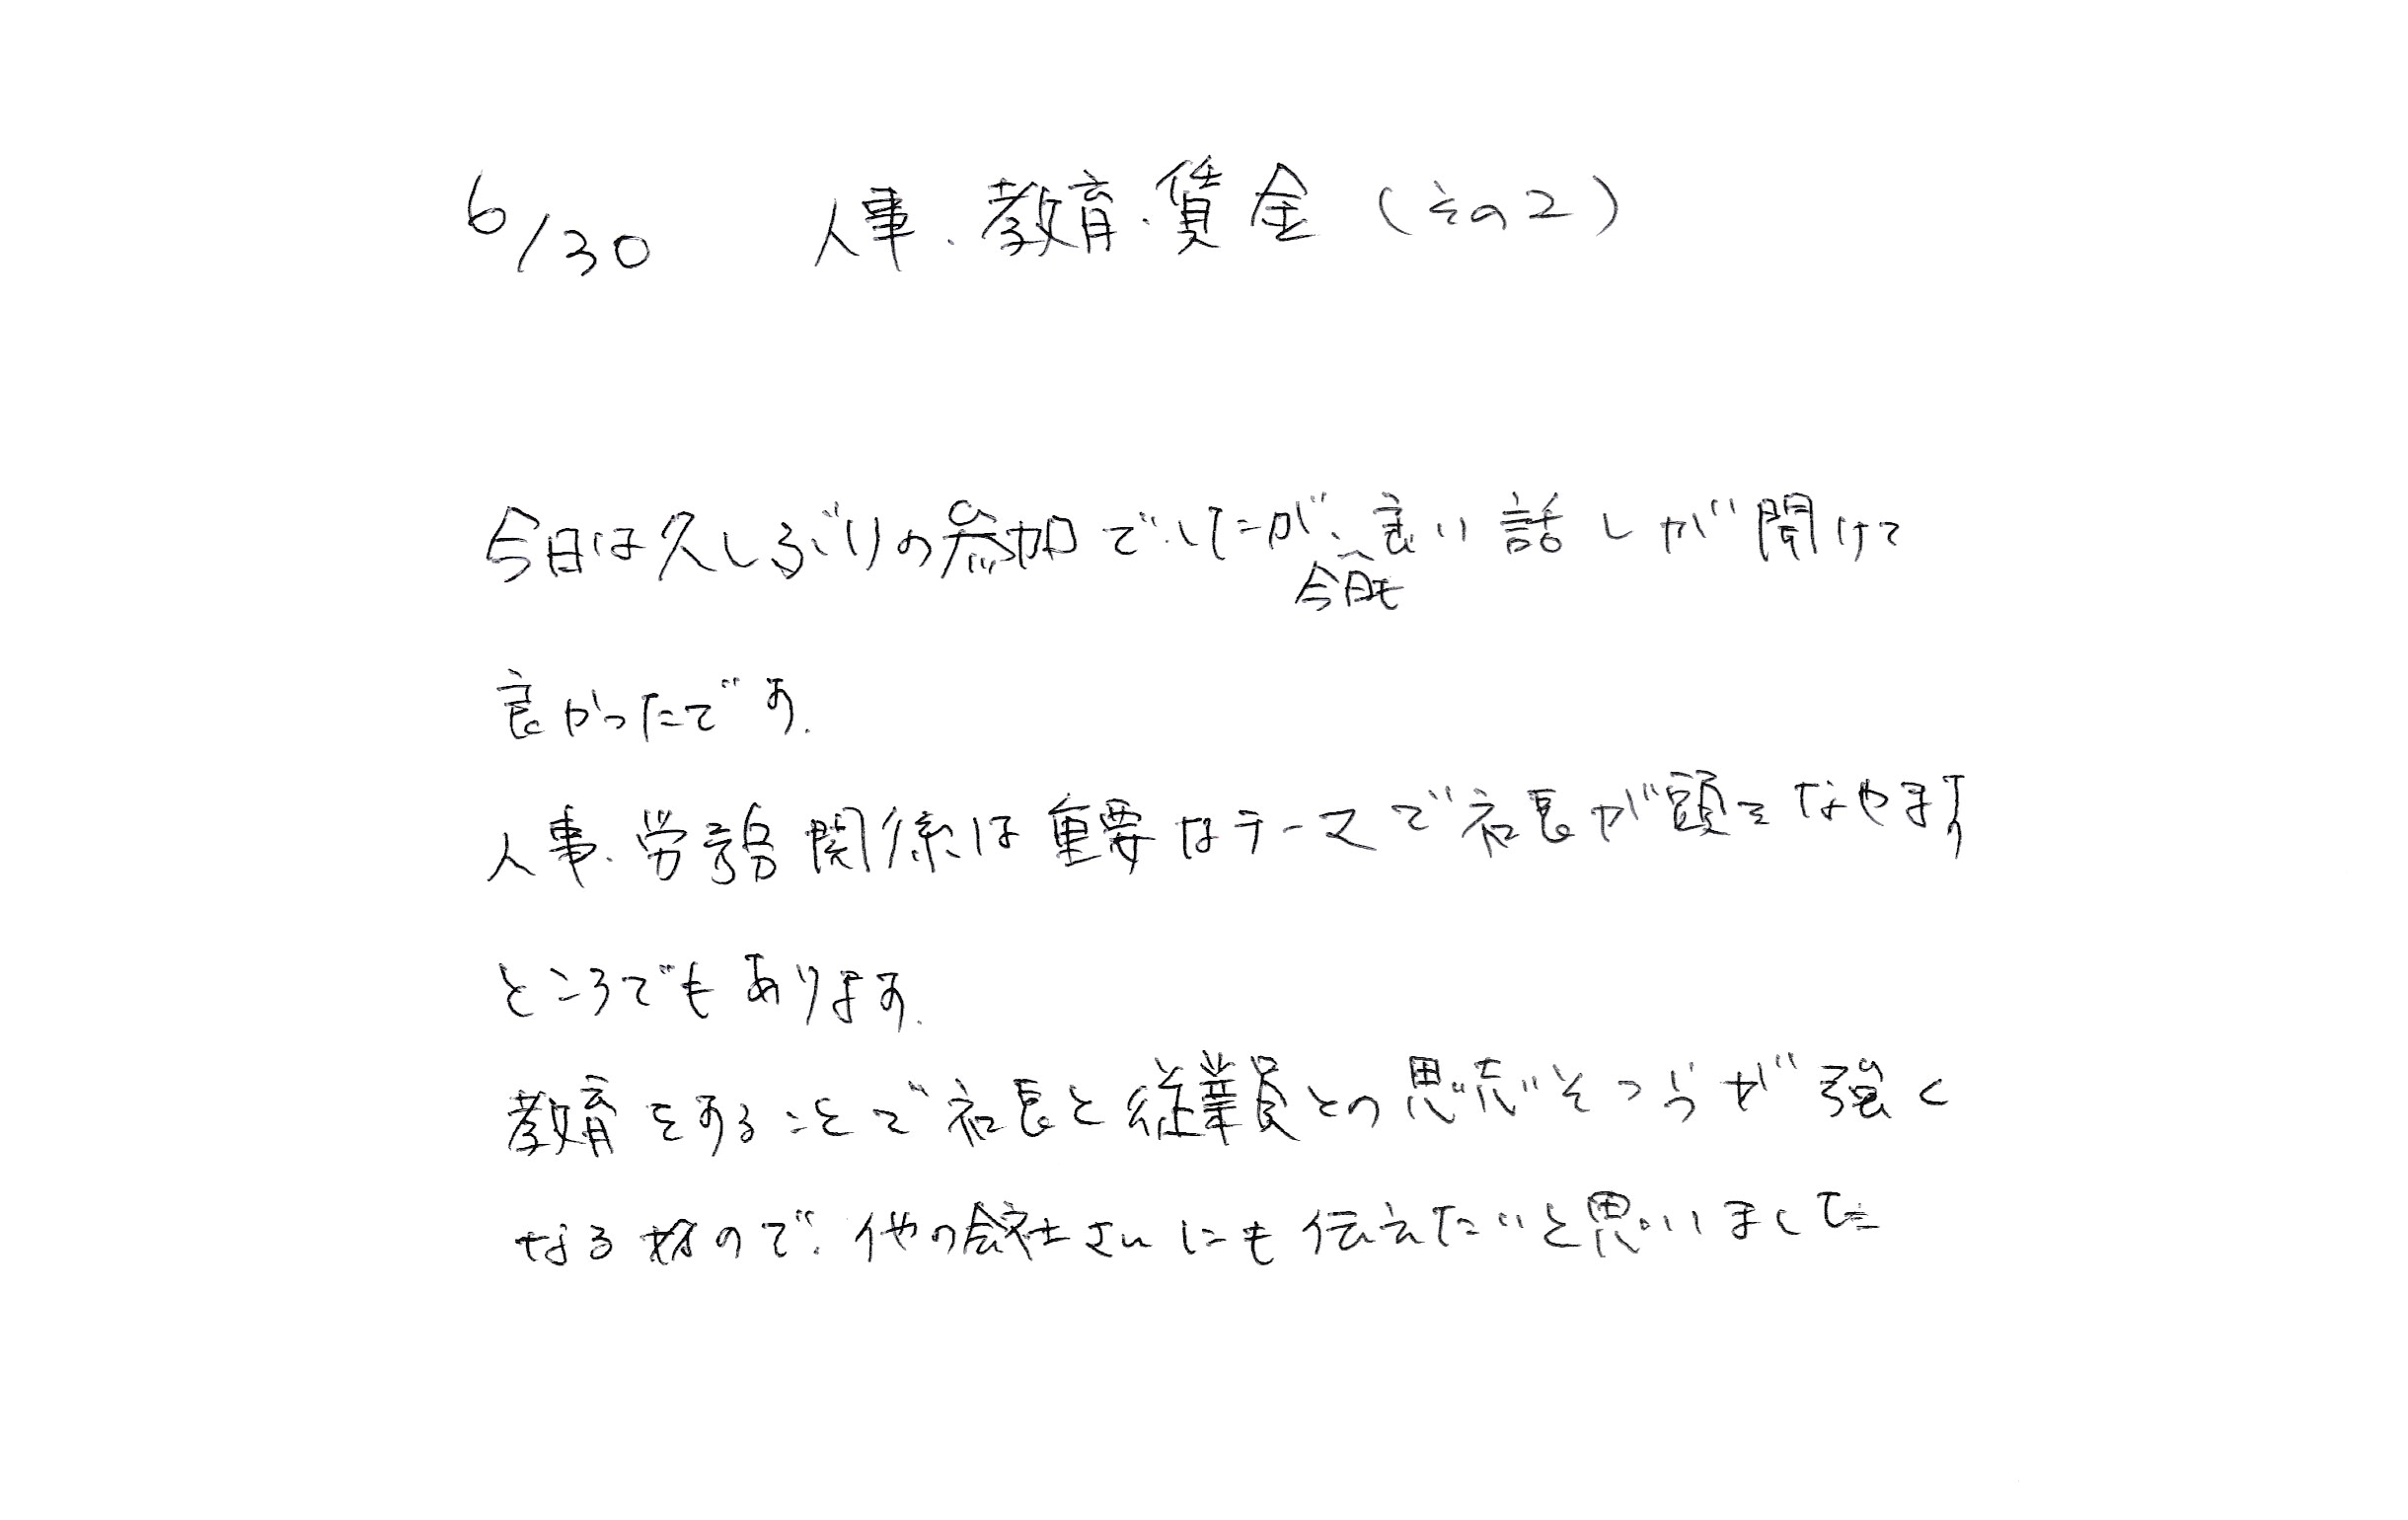 6/30 人事、教育、賃金（その2）
今日は久しぶりの参加でしたが、良い話しが聞けて
今日も
良かったです。
人事、労務関係は重要なテーマで社長が頭をなやます
ところでもあります。
教育をすることで社長と従業員との意志そつうが強く
なるので、他の会社さんにも伝えたいと思いました